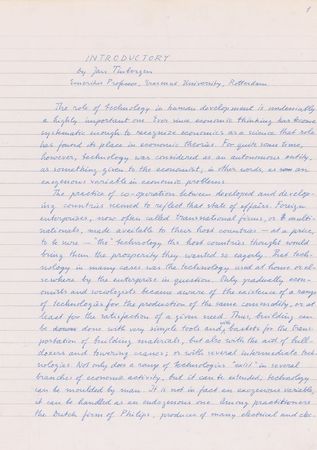 1
INTRODUCTORY
by Jan Tinbergen
Emeritus Professor, Erasmus University, Rotterdam
The role of technology in human development is undeniably
a highly important one. Ever since economic thinking has become
systematic enough to recognize economics as a science that role
has found its place in economic theories. For quite some time,
however, technology was considered as an autonomous entity,
as something given to the economist; in other words, as an
exogenous variable in economic problems.
The practice of co-operation between developed and develop-
ing countries seemed to reflect that state of affairs. Foreign
enterprises, now often called transnational firms, or multi-
nationals, made available to their host countries – at a price,
to be sure – "the" technology the host countries thought would
bring them the prosperity they wanted so eagerly. That tech-
nology in many cases was the technology used at home or el-
sewhere by the enterprise in question. Only gradually econ-
omists and sociologists became aware of the existence of a range
of technologies for the production of the same commodity, or at
least for the satisfaction of a given need. Thus, building can
be done with very simple tools and with baskets for the trans-
portation of building materials, but also with the aid of bull-
dozers and towering cranes; or with several intermediate tech-
nologies. Not only does a range of technologies "exist" in several
branches of economic activity, but it can be extended: technology
can be moulded by man. It is not in fact an exogenous variable,
it can be handled as an endogenous one. Among practitioners
the Dutch firm of Philips, producer of many electrical and elec-